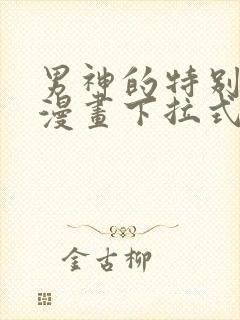 男神的特别
漫畫下拉式
金古柳